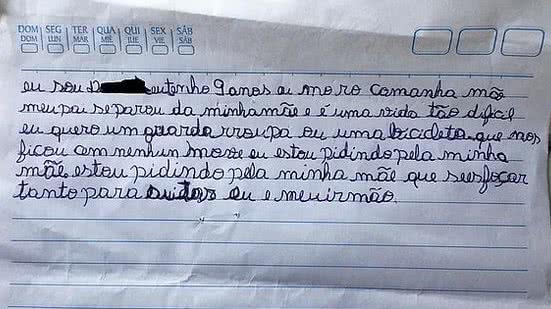 DOM SEG TER QUA QUI SEX SÁB
DOM LUN MAR MIÉ JUE VIE SÁB
eu sou eutenho 9 anos eu moro comanha mãe
meu pai separou da minha mãe e é uma vida tão dificil
eu quero um guarda rroupa ou uma bicicleta que nos
ficou cem nenhun move eu estou pidindo pela minha
mãe. estou pidindo pela minha mãe que seesfoçar
tanto para cuidar eu e meu irmão.